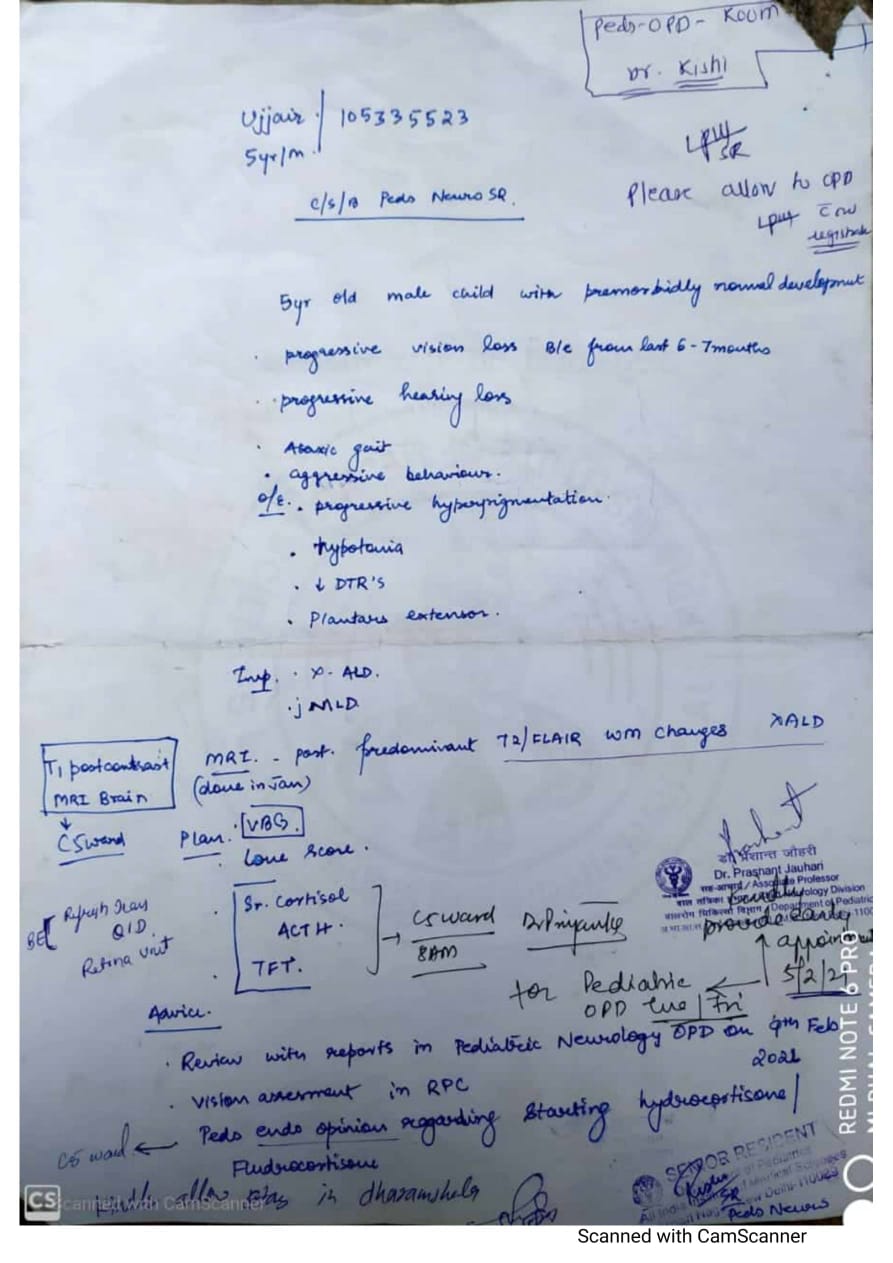 Peds-OPD- Room
Dr. Kishi
Ujjair 105335523
5yr/m
SR
Please allow to OPD
c/s/B Peds Neuro SR.
5yr old male child with premorbidly normal development
· progressive vision loss B/e from last 6-7months
· progressive hearing loss
· Ataxic gait
· aggressive behaviour.
O/E. · progressive hyperpigmentation.
· hypotonia
· ↓ DTR'S
· Plantars extensor.
Imp. · X-ALD.
· j MLD
MRI. - post. predominant T2/FLAIR WM changes XALD
(done in Jan)
T1 postcontrast
MRI Brain
↓
C5ward
Plan. · VBG.
· Loue score.
· Sr. Cortisol
ACTH.
TFT.
→ C5 ward
8AM
Dr Priyanka
BE Refresh Tears
QID.
Retina Unit
डॉ. प्रशान्त जौहरी
Dr. Prashant Jauhari
सह-आचार्य / Associate Professor
Department of Pediatric
Kindly
provide early
appointment
5/2/21
for Pediatric
OPD Tue/Fri
Advice.
· Review with reports in Pediatric Neurology OPD on 9th Feb
2021
· Vision assesment in RPC
C5 ward ← Peds endo opinion regarding starting hydrocortisone/
Fludrocortisone
Kindly allow stay in dharamshala
SENIOR RESIDENT
SR
Peds Neuro
REDMI NOTE 6 PRO
MI DUAL CAMERA
CS Scanned with CamScanner
Scanned with CamScanner